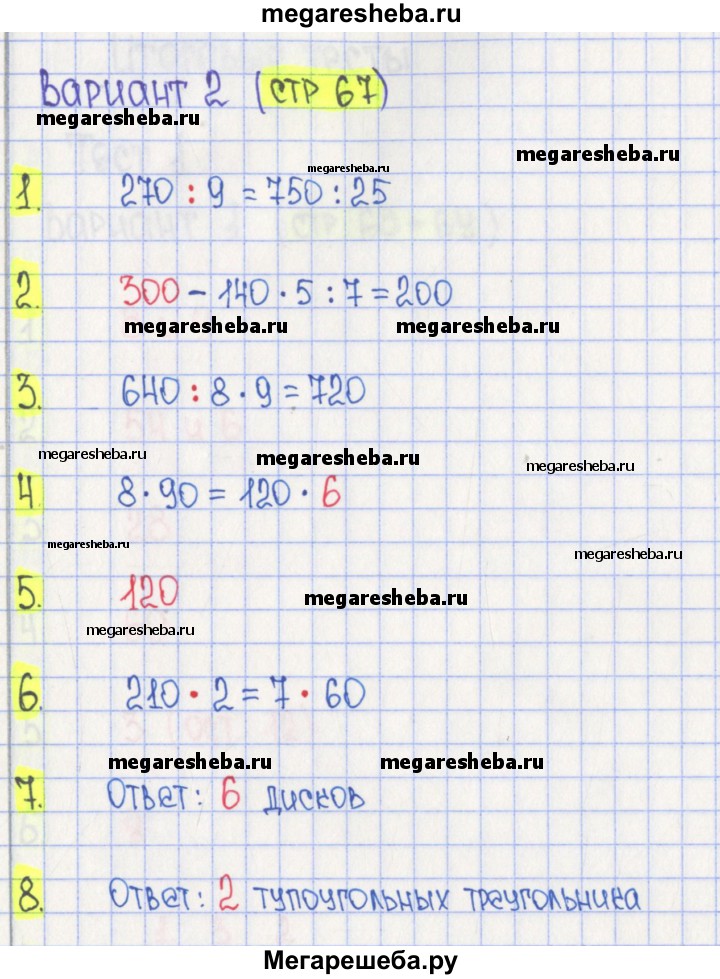 megaresheba.ru
Вариант 2 (стр 67)
megaresheba.ru
megaresheba.ru
megaresheba.ru
1. 270 : 9 = 750 : 25
2. 300 - 140 · 5 : 7 = 200
megaresheba.ru megaresheba.ru
3. 640 : 8 · 9 = 720
megaresheba.ru megaresheba.ru megaresheba.ru
4. 8 · 90 = 120 · 6
megaresheba.ru megaresheba.ru
5. 120
megaresheba.ru
megaresheba.ru
6. 210 · 2 = 7 · 60
megaresheba.ru megaresheba.ru
7. Ответ: 6 дисков
8. Ответ: 2 тупоугольных треугольника
Мегарешеба.ру